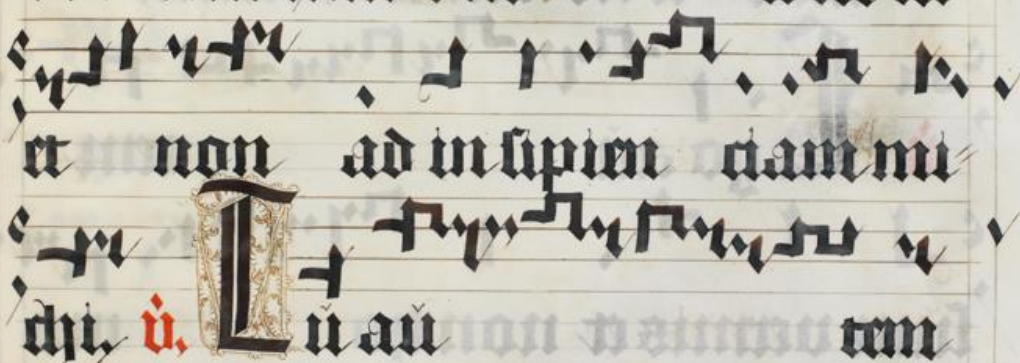 et non ad inſipien ciam mi⸗
chi, v̇. Tŭ aŭ tem